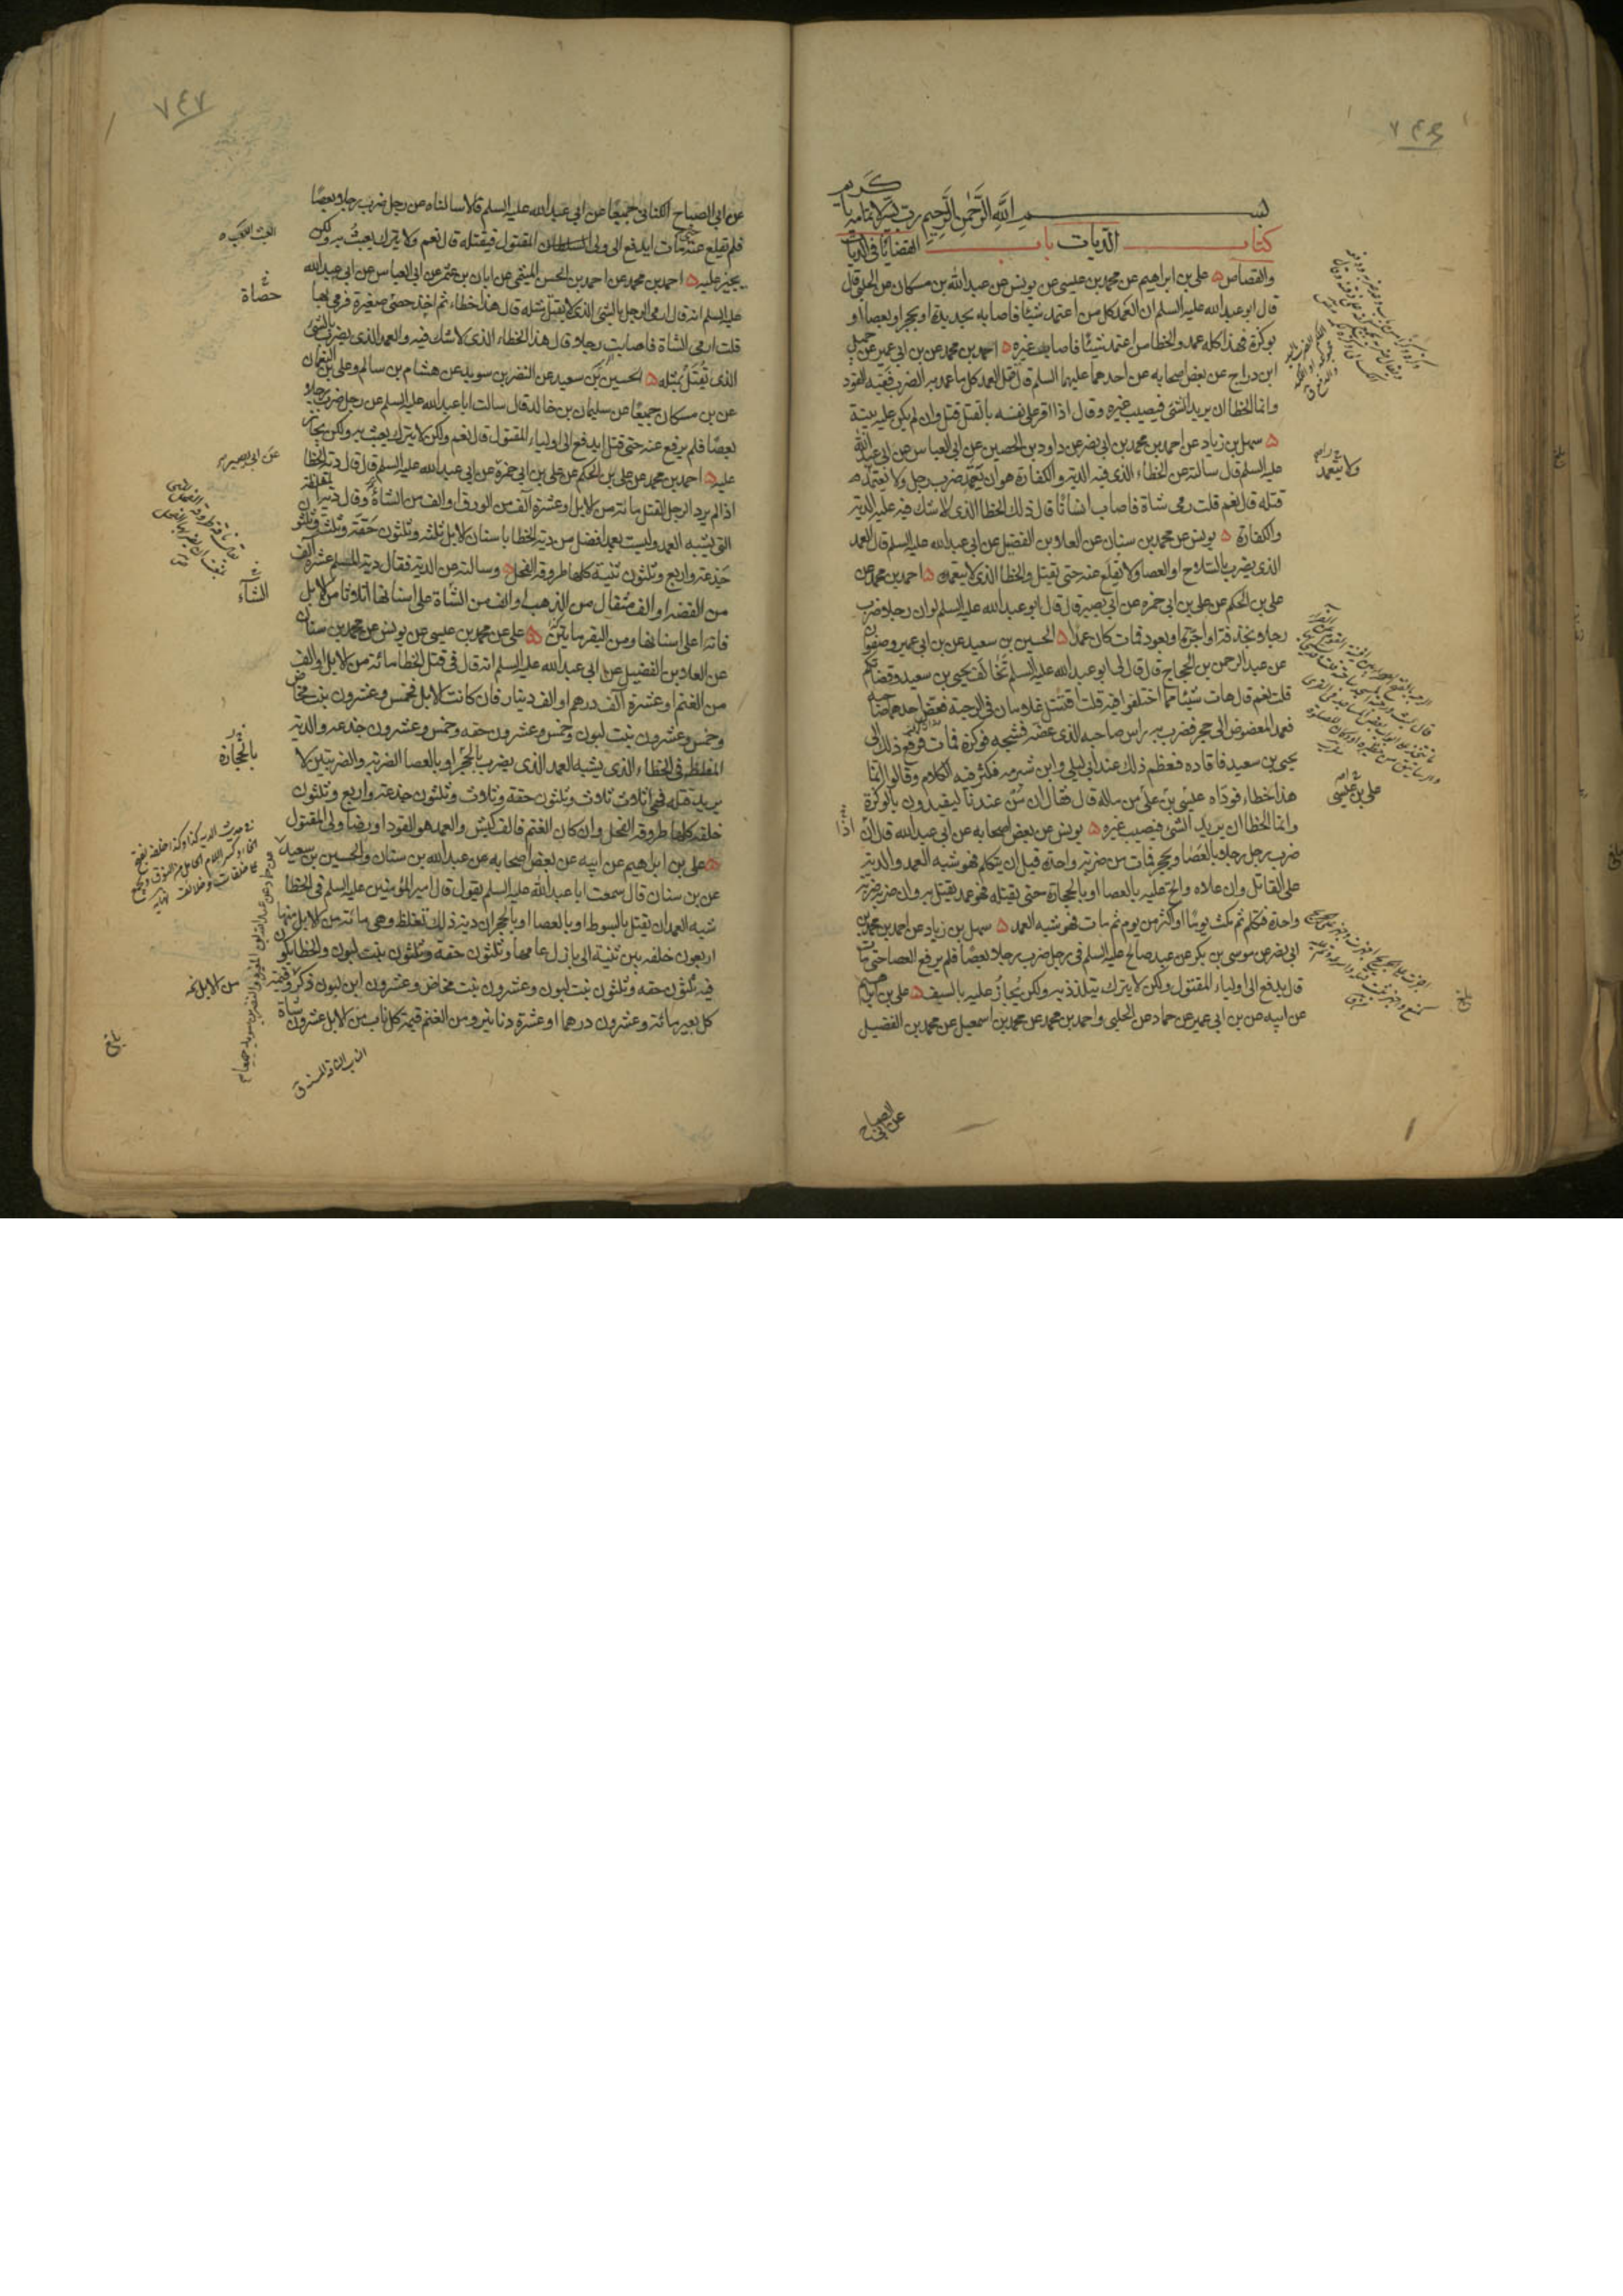 ٧٤٦
بسم الله الرحمن الرحيم رب يسر لاتمامه يا كريم
كتاب الديات باب القضايا في الديات
والقصاص علي بن ابراهيم عن محمد بن عيسى عن يونس عن عبد الله بن مسكان عن الحلبي قال
قال ابو عبد الله عليه السلم ان العمد كل من اعتمد شيئا فاصابه بحديدة او بحجر او بعصا او
بوكزة فهذا كله عمد والخطا من اعتمد شيئا فاصاب غيره احمد بن محمد عن بن ابي عمير عن جميل
ابن دراج عن بعض اصحابه عن احدهما عليهما السلم قال قتل العمد كل ما عمد به الضرب ففيه القود
وانما الخطا ان يريد الشئ فيصيب غيره وقال اذا اقر على نفسه بالقتل قتل وان لم يكن عليه بينة
سهل بن زياد عن احمد بن محمد بن ابي نصر عن داود بن الحصين عن ابي العباس عن ابي عبد الله
عليه السلم قال سالته عن الخطاء الذي فيه الدية والكفارة هو ان يتعمد ضرب رجل ولا يتعمد
قتله قال نعم قلت رمى شاة فاصاب انسانا قال ذلك الخطا الذي لا شك فيه عليه الدية
والكفارة يونس عن محمد بن سنان عن العلا بن الفضيل عن ابي عبد الله عليه السلم قال العمد
الذي يضرب بالسلاح او العصا ولا يقلع عنه حتى يقتل والخطا الذي لا يتعمده احمد بن محمد عن
علي بن الحكم عن علي بن ابي حمزه عن ابي بصير قال قال ابو عبد الله عليه السلم لو ان رجلا ضرب
رجلا بخذفة او اجرة او بعود فمات كان عمدا الحسين بن سعيد عن بن ابي عمير وصفوان
عن عبد الرحمن بن الحجاج قال قال لي ابو عبد الله عليه السلم تخالف يحيى بن سعيد وقضاتكم
قلت نعم قال هات شيئا مما اختلفوا فيه قلت اقتتل غلامان في الرحبة فعض احدهما صاحبه
فعمد المعضوض الى حجر فضرب به راس صاحبه الذي عضه فشجه فوكزة فمات فرفع ذلك الى
يحيى بن سعيد فاقاده فعظم ذلك عند ابي ليلى وابن شبرمه فكثر فيه الكلام وقالوا انما
هذا خطاء فوداه عيسى بن علي من ماله قال فقال ان من عندنا ليقيدون بالوكزة
وانما الخطا ان يريد الشئ فيصيب غيره يونس عن بعض اصحابه عن ابي عبد الله قال ان
ضرب رجل رجلا بالعصا او بحجر فمات من ضربة واحدة قبل ان يتكلم فهو شبه العمد والدية
على القاتل وان علاه والح عليه بالعصا او بالحجارة حتى يقتله فهو عمد يقتل به وان ضربه ضربة
واحدة فتكلم ثم مكث يوما او اكثر من يوم ثم مات فهو شبه العمد سهل بن زياد عن احمد بن محمد بن
ابي نصر عن موسى بن بكر عن عبد صالح عليه السلم في رجل ضرب رجلا بعصا فلم يرفع العصا حتى مات
قال يدفع الى اولياء المقتول ولكن لا يترك يتلذذ به ولكن يجاز عليه بالسيف علي بن ابراهيم
عن ابيه عن بن ابي عمير عن حماد عن الحلبي واحمد بن محمد عن محمد بن اسمعيل عن محمد بن الفضيل
عن ابي الصباح
ولا يتعمد
علي بن عيسى
اذا
٧٤٧
عن ابي الصباح الكناني جميعا عن ابي عبد الله عليه السلم قالا سالناه عن رجل ضرب رجلا بعصا
فلم يقلع عنه حتى مات ايدفع الى ولي المقتول فيقتله قال نعم ولا يترك يعبث به ولكن
يجيز عليه احمد بن محمد عن احمد بن الحسن الميثمي عن ابان بن عثمن عن ابي العباس عن ابي عبد الله
عليه السلم انه قال ارمي الرجل بالشئ الذي لا يقتل مثله قال هذا خطاء ثم اخذ حصى صغيرة فرمى بها
قلت ارمي الشاة فاصابت رجلا قال هذا الخطاء الذي لا شك فيه والعمد الذي يضرب بالشئ
الذي يقتل بمثله الحسين بن سعيد عن النضر بن سويد عن هشام بن سالم وعلي بن النعمان
عن بن مسكان جميعا عن سليمان بن خالد قال سالت ابا عبد الله عليه السلم عن رجل ضرب رجلا
بعصا فلم يرفع عنه حتى قتل ايدفع الى اولياء المقتول قال نعم ولكن لا يترك يعبث به ولكن يجاز
عليه احمد بن محمد عن علي بن الحكم عن علي بن ابي حمزة عن ابي عبد الله عليه السلم قال قال دية الخطا
اذا لم يرد الرجل القتل مائة من الابل او عشرة آلف من الورق او الف من الشاة وقال دية المغلظة
التي تشبه العمد وليست بعمد افضل من دية الخطا باسنان الابل ثلثه وثلثون حقة وثلث وثلثون
جذعة واربع وثلثون ثنية كلها طروقة الفحل وسالته عن الدية فقال دية المسلم عشرة آلف
من الفضه او الف مثقال من الذهب او الف من الشاة على اسنانها اثلاثا من الابل
مائة على اسنانها ومن البقر مايتين علي عن محمد بن عيسى عن يونس عن محمد بن سنان
عن العلا بن الفضيل عن ابي عبد الله عليه السلم انه قال في قتل الخطا مائة من الابل او الف
من الغنم او عشرة آلف درهم او الف دينار فان كانت الابل فخمس وعشرون بنت مخاض
وخمس وعشرون بنت لبون وخمس وعشرون حقه وخمس وعشرون جذعه والدية
المغلظة في الخطاء الذي يشبه العمد الذي يضرب بالحجر او بالعصا الضربة والضربتين لا
يريد قتله فهي اثلاث ثلاث وثلثون حقه وثلاث وثلثون جذعة واربع وثلثون
خلفه كلها طروقه الفحل وان كان الغنم فالف كبش والعمد هو القود او رضا ولي المقتول
علي بن ابراهيم عن ابيه عن بعض اصحابه عن عبد الله بن سنان والحسين بن سعيد
عن بن سنان قال سمعت ابا عبد الله عليه السلم يقول قال امير المؤمنين عليه السلم في الخطا
شبه العمد ان يقتل بالسوط او بالعصا او بالحجر ان دية ذلك تغلظ وهي مائة من الابل منها
اربعون خلفه بين ثنية الى بازل عامها وثلثون حقه وثلثون بنت لبون والخطا يكون
فيه ثلثون حقه وثلثون بنت لبون وعشرون بنت مخاض وعشرون ابن لبون ذكر وقيمة
كل بعير مائة وعشرون درهما او عشرة دنانير ومن الغنم قيمة كل ناب من الابل عشرون شاة
حصاة
عن ابي بصير
الشاء
بالحجارة
عن حماد عن عبد الله بن المغيرة والنضر بن سويد جميعا
من الابل
بلغ
الناب الناقة المسنة ق